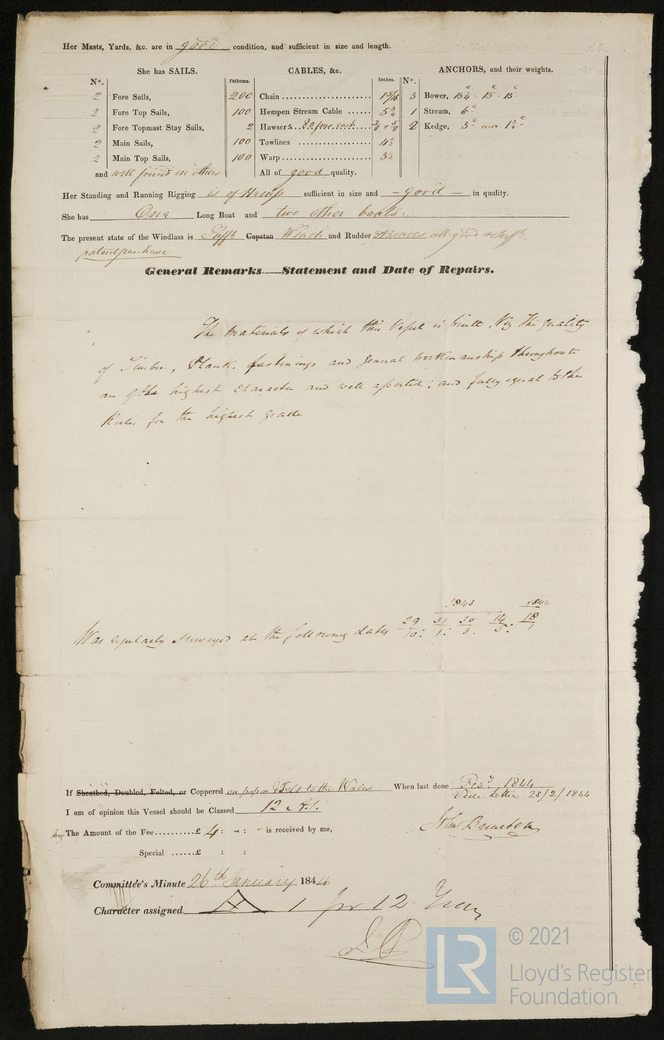 Her Masts, Yards, &c. are in good condition, and sufficient in size and length.
She has SAILS. CABLES, &c. ANCHORS, and their weights.
No. Fathoms. Inches. No.
2 Fore Sails, 200 Chain 1 5/16 3 Bower, 15
2 Fore Top Sails, 100 Hempen Stream Cable 1 Stream, 6
2 Fore Topmast Stay Sails, 2 Hawsers 2 Kedge, 3 and
2 Main Sails, 100 Towlines 4½
2 Main Top Sails, 100 Warp
and well found in others All of good quality.
Her Standing and Running Rigging is of Hemp sufficient in size and good in quality.
She has One Long Boat and two other boats.
The present state of the Windlass is Capstan Winch and Rudder all good & Sufft.
patent purchase
General Remarks—Statement and Date of Repairs.
The materials of which this Vessel is built, Viz The quality
of Timber, Plank, fastenings and general workmanship throughout
are of the highest character and well and fully equal to the
Rules for the highest grade
1843 1844
Was regularly surveyed at the following dates 29/10: 31/1: 14/ 18/1
If Sheathed, Doubled, Felted, or Coppered on paper & Felt to the Wales When last done Feby 1844
Vide Letter 22/2/1844
I am of opinion this Vessel should be Classed 12 A.1.
The Amount of the Fee..........£ 4 : - : - is received by me,
Special ......£ : :
Committee's Minute 26th January 1844
Character assigned A 1 for 12 Years
© 2021
LR
Lloyd's Register
Foundation